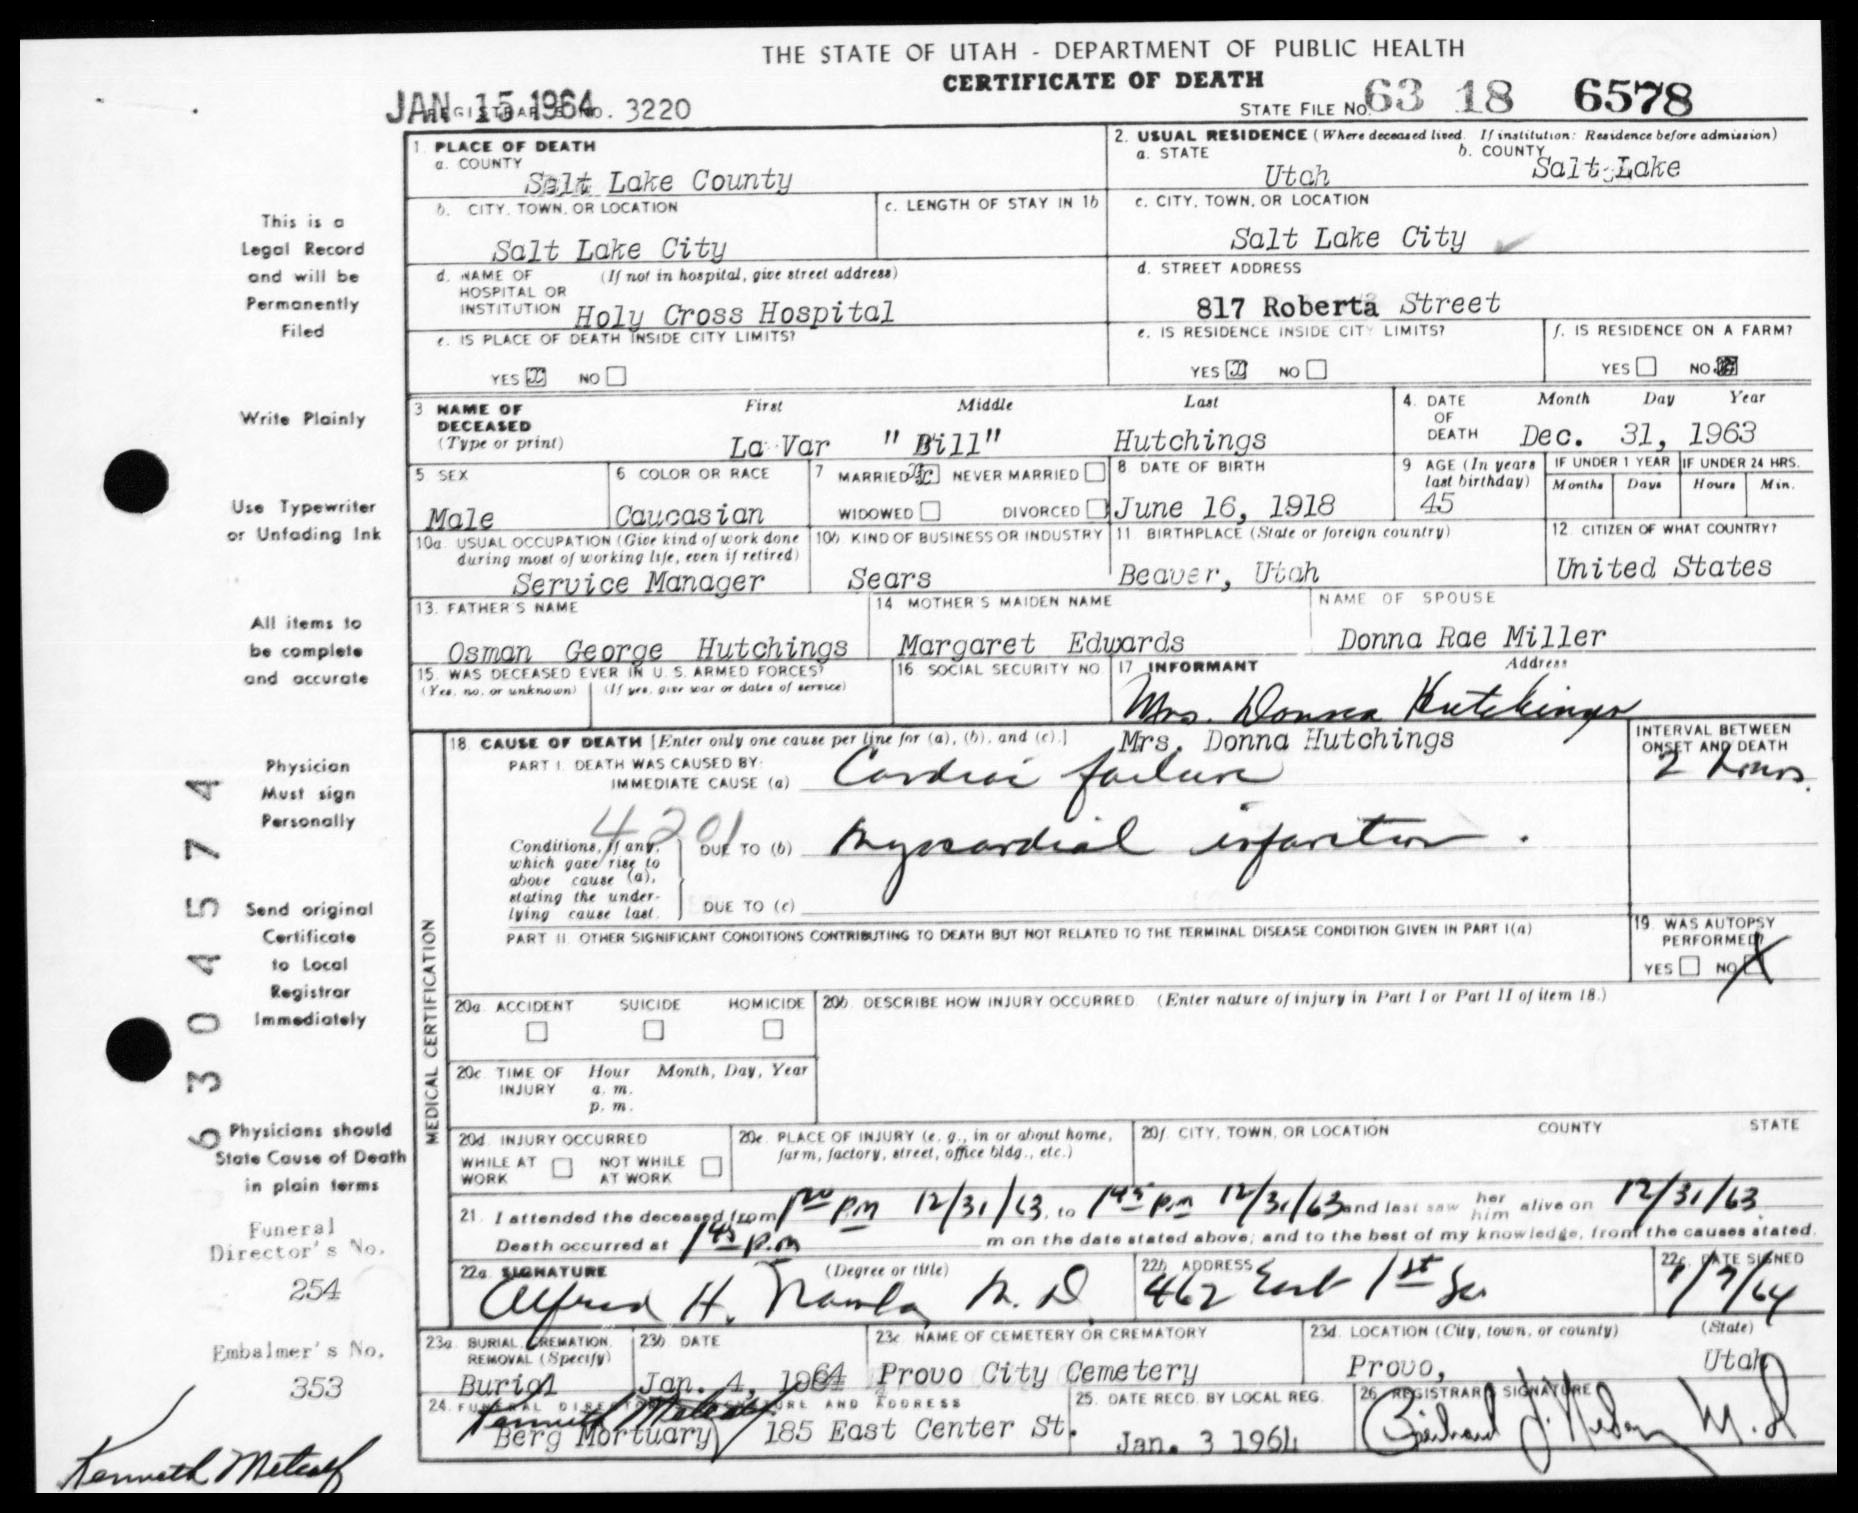 THE STATE OF UTAH - DEPARTMENT OF PUBLIC HEALTH
CERTIFICATE OF DEATH
JAN 15 1964 REGISTRAR'S NO. 3220
STATE FILE NO. 63 18 6578
1. PLACE OF DEATH
a. COUNTY
Salt Lake County
2. USUAL RESIDENCE (Where deceased lived. If institution: Residence before admission)
a. STATE
Utah
b. COUNTY
Salt Lake
b. CITY, TOWN, OR LOCATION
Salt Lake City
c. LENGTH OF STAY IN 1b
c. CITY, TOWN, OR LOCATION
Salt Lake City
d. NAME OF (If not in hospital, give street address)
HOSPITAL OR
INSTITUTION Holy Cross Hospital
d. STREET ADDRESS
817 Roberta Street
e. IS PLACE OF DEATH INSIDE CITY LIMITS?
YES X NO
e. IS RESIDENCE INSIDE CITY LIMITS?
YES X NO
f. IS RESIDENCE ON A FARM?
YES NO
3 NAME OF DECEASED
(Type or print)
First Middle Last
La Var "Bill" Hutchings
4. DATE OF DEATH
Month Day Year
Dec. 31, 1963
5 SEX
Male
6 COLOR OR RACE
Caucasian
7 MARRIED X NEVER MARRIED
WIDOWED DIVORCED
8 DATE OF BIRTH
June 16, 1918
9 AGE (In years last birthday)
45
IF UNDER 1 YEAR
Months Days
IF UNDER 24 HRS.
Hours Min.
10a. USUAL OCCUPATION (Give kind of work done
during most of working life, even if retired)
Service Manager
10b. KIND OF BUSINESS OR INDUSTRY
Sears
11 BIRTHPLACE (State or foreign country)
Beaver, Utah
12 CITIZEN OF WHAT COUNTRY?
United States
13. FATHER'S NAME
Osman George Hutchings
14 MOTHER'S MAIDEN NAME
Margaret Edwards
NAME OF SPOUSE
Donna Rae Miller
15. WAS DECEASED EVER IN U. S. ARMED FORCES?
(Yes, no, or unknown) (If yes, give war or dates of service)
16 SOCIAL SECURITY NO.
17 INFORMANT Address
Mrs. Donna Hutchings
Mrs. Donna Hutchings
MEDICAL CERTIFICATION
18. CAUSE OF DEATH [Enter only one cause per line for (a), (b), and (c).]
INTERVAL BETWEEN
ONSET AND DEATH
PART I. DEATH WAS CAUSED BY:
IMMEDIATE CAUSE (a) Cardiac failure
2 hours.
4201
Conditions, if any,
which gave rise to
above cause (a),
stating the under-
lying cause last.
DUE TO (b) Myocardial infarction.
DUE TO (c)
PART II. OTHER SIGNIFICANT CONDITIONS CONTRIBUTING TO DEATH BUT NOT RELATED TO THE TERMINAL DISEASE CONDITION GIVEN IN PART I(a)
19. WAS AUTOPSY
PERFORMED?
YES NO X
20a. ACCIDENT SUICIDE HOMICIDE
20b. DESCRIBE HOW INJURY OCCURRED. (Enter nature of injury in Part I or Part II of item 18.)
20c. TIME OF INJURY
Hour Month, Day, Year
a. m.
p. m.
20d. INJURY OCCURRED
WHILE AT WORK NOT WHILE AT WORK
20e. PLACE OF INJURY (e. g., in or about home,
farm, factory, street, office bldg., etc.)
20f. CITY, TOWN, OR LOCATION COUNTY STATE
21. I attended the deceased from 1 00 P.M 12/31/63, to 1 45 P.m 12/31/63 and last saw her him alive on 12/31/63.
Death occurred at 1 45 p.m m on the date stated above; and to the best of my knowledge, from the causes stated.
22a. SIGNATURE (Degree or title)
Alfred H. M. D.
22b. ADDRESS
462 East 1st So
22c. DATE SIGNED
1/7/64
23a. BURIAL, CREMATION,
REMOVAL (Specify)
Burial
23b. DATE
Jan. 4, 1964
23c. NAME OF CEMETERY OR CREMATORY
Provo City Cemetery
23d. LOCATION (City, town, or county) (State)
Provo, Utah
24. FUNERAL DIRECTOR'S SIGNATURE AND ADDRESS
Kenneth Metcalf
Berg Mortuary 185 East Center St.
25. DATE RECD. BY LOCAL REG.
Jan. 3 1964
26. REGISTRAR'S SIGNATURE
M. D.
This is a
Legal Record
and will be
Permanently
Filed
Write Plainly
Use Typewriter
or Unfading Ink
All items to
be complete
and accurate
Physician
Must sign
Personally
Send original
Certificate
to Local
Registrar
Immediately
Physicians should
State Cause of Death
in plain terms
Funeral
Director's No.
254
Embalmer's No.
353
Kenneth Metcalf
63045574